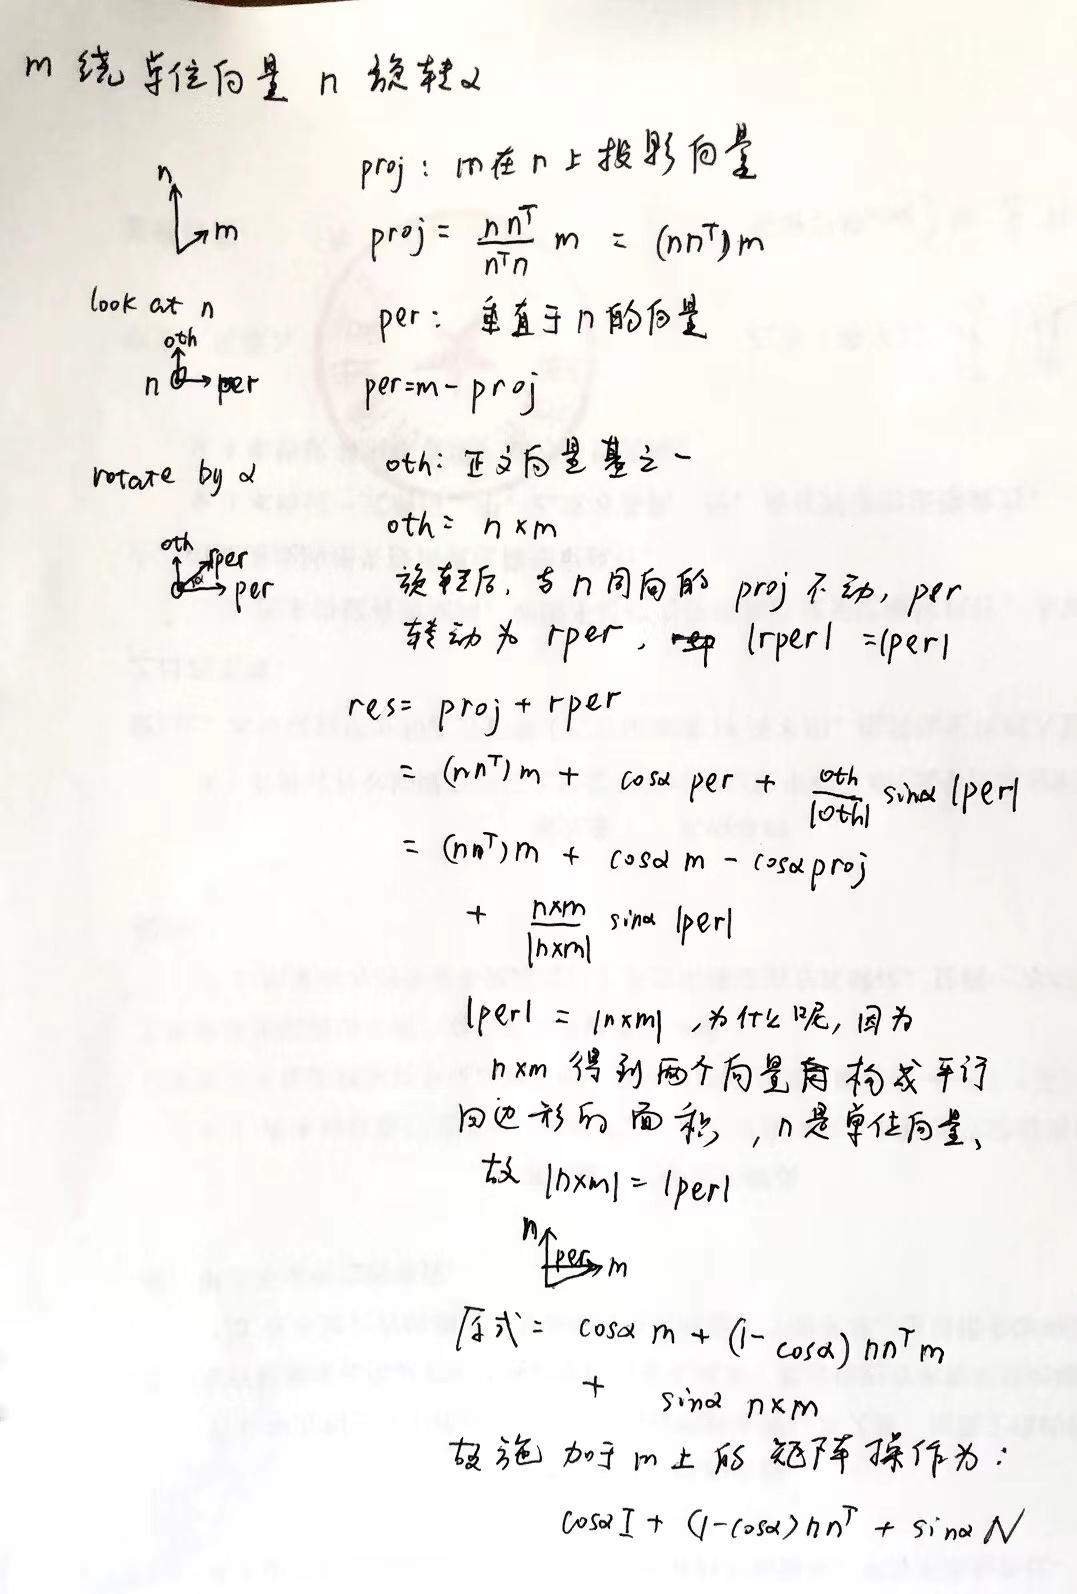 m 绕单位向量 n 旋转α
n
m
proj: m在n上投影向量
proj = \frac{nn^T}{n^Tn} m = (nn^T)m
look at n
oth
n per
per: 垂直于n的向量
per=m- proj
rotate by α
oth rper
α per
oth: 正交向量基之一
oth= n×m
旋转后, 与n同向的 proj 不动, per
转动为 rper, |rper| =|per|
res= proj + rper
= (nn^T)m + cosα per + \frac{oth}{|oth|} sinα |per|
= (nn^T)m + cosα m - cosα proj
+ \frac{n×m}{|n×m|} sinα |per|
|per| = |n×m| ,为什么呢, 因为
n×m 得到两个向量构成平行
四边形的面积, n是单位向量,
故 |n×m| = |per|
n
per m
原式= cosα m + (1-cosα) nn^T m
+ sinα n×m
故施加于m上的矩阵操作为:
cosα I + (1-cosα) nn^T + sinα N